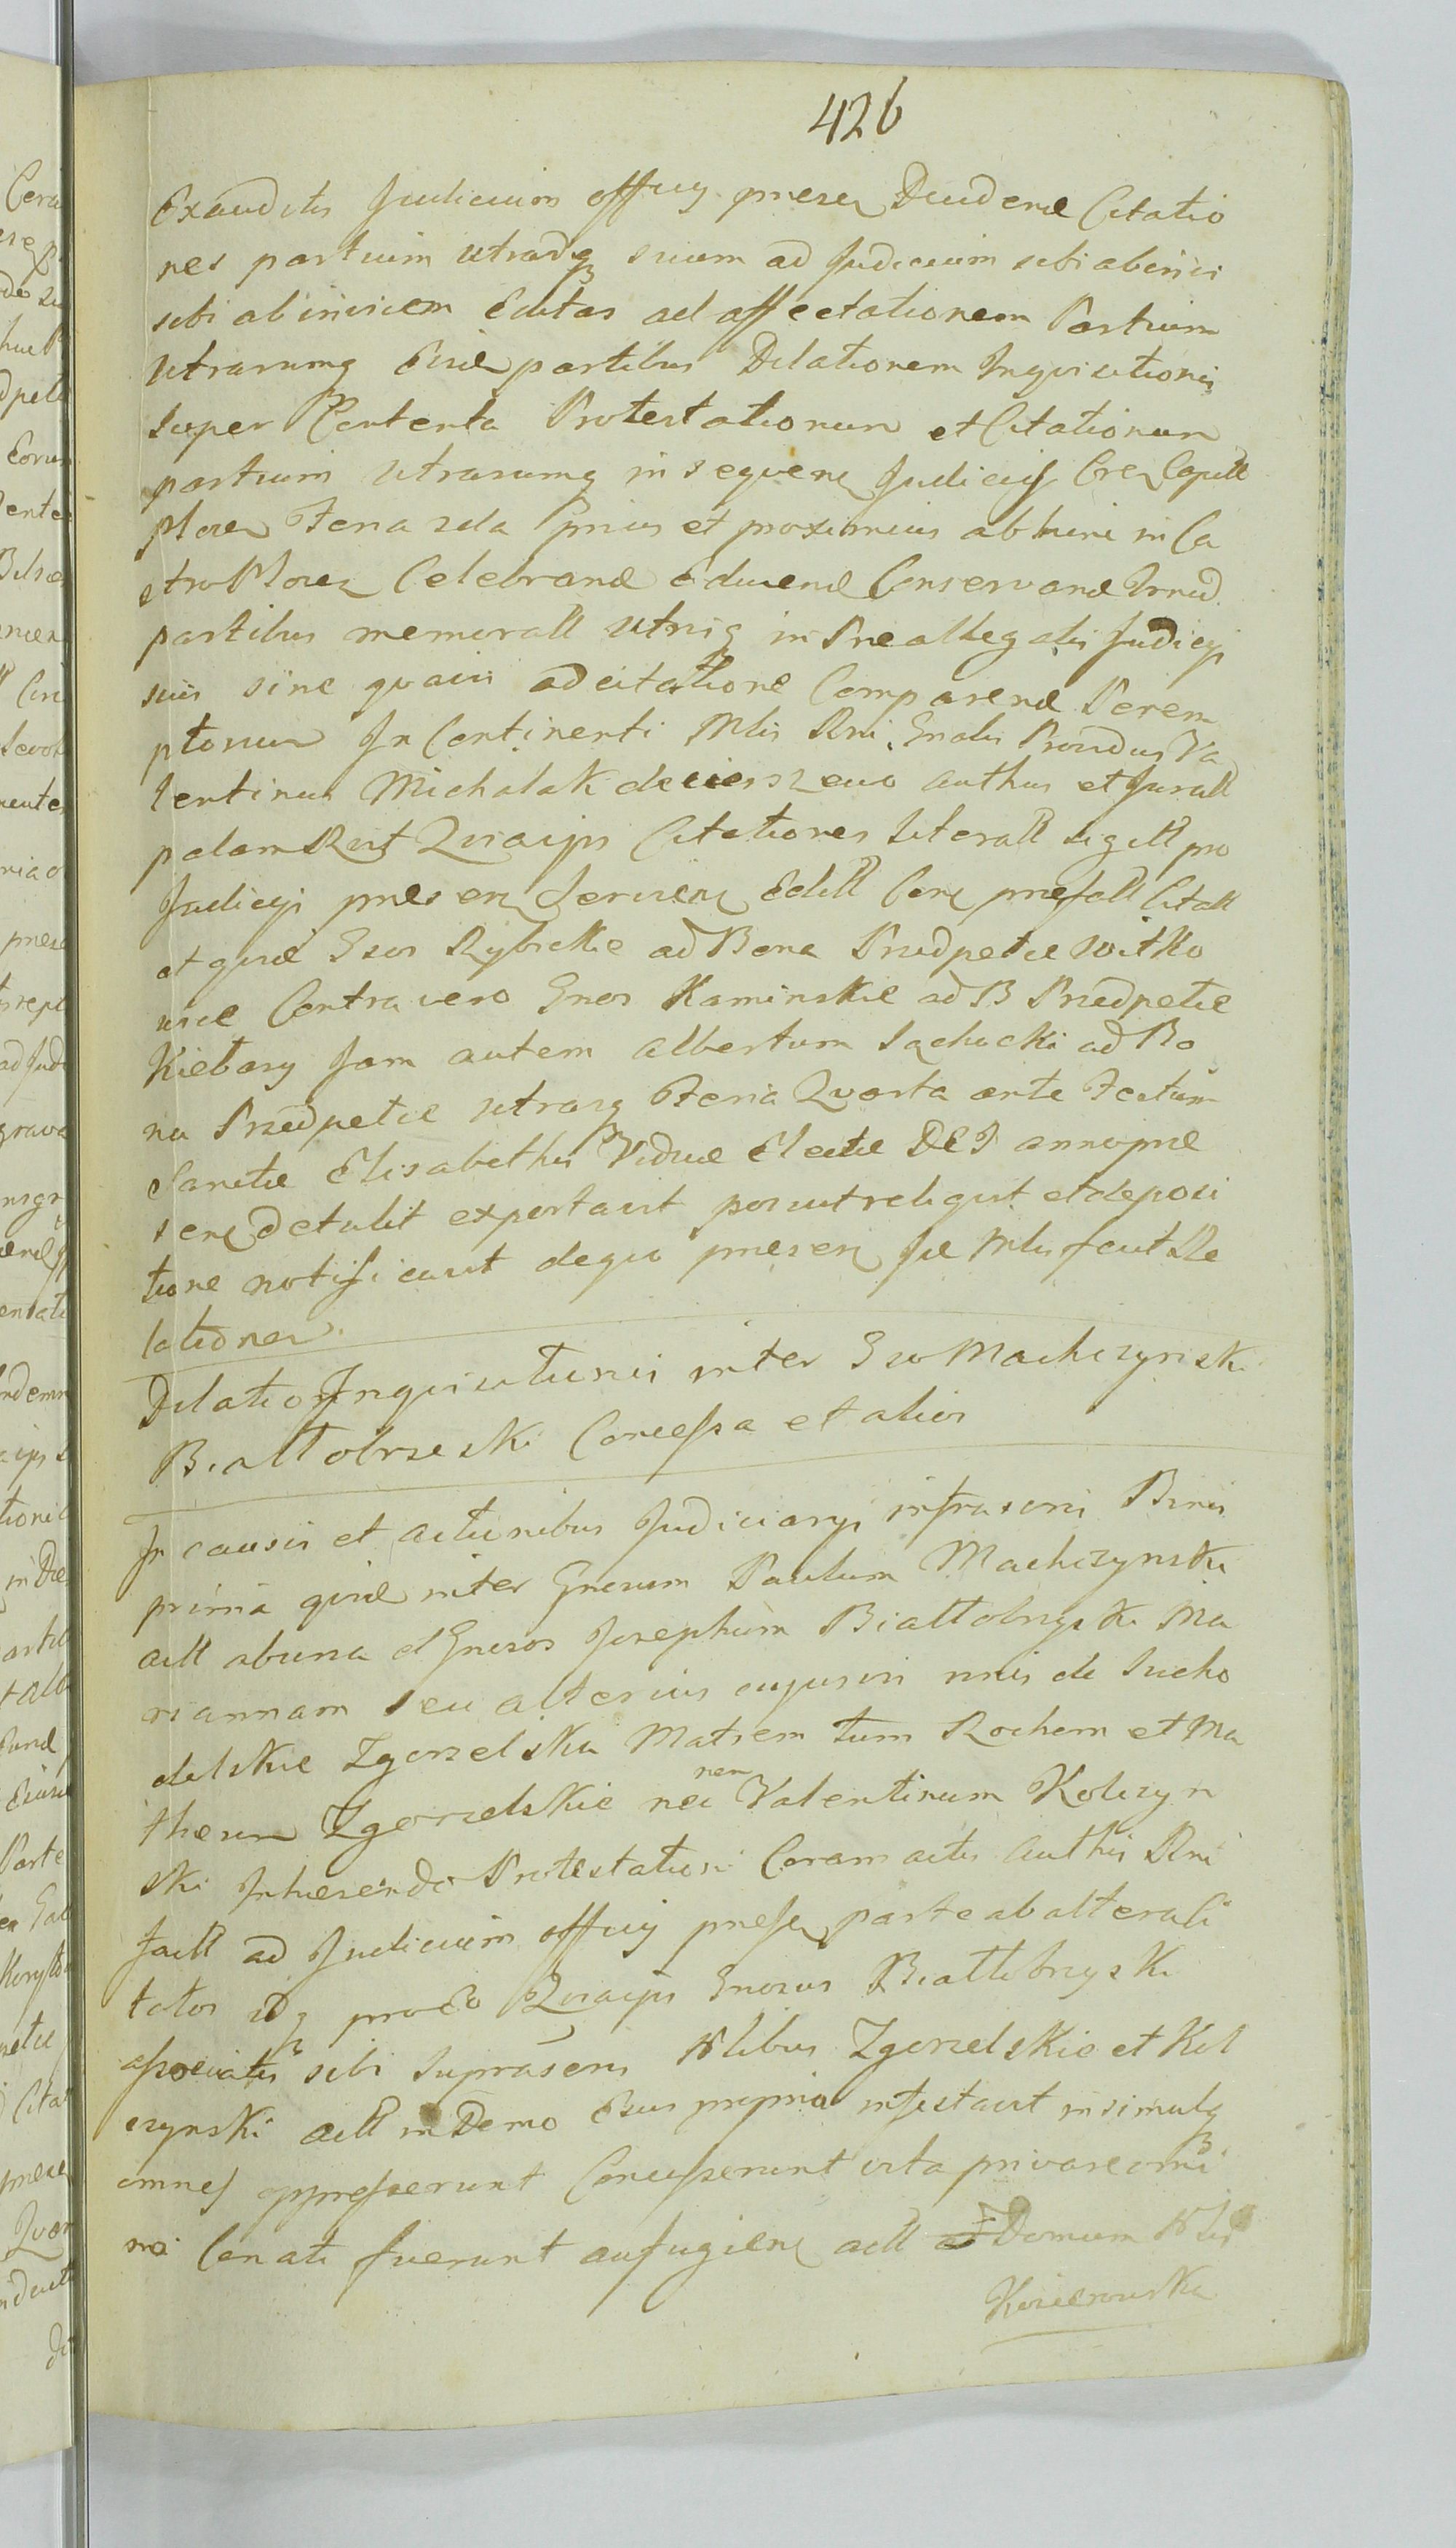 426
Exauditis Judicium officij presen Deudend Citatio
nes partium utrarq suum ad Judicium sibi abinvi
sibi abinvicem Editas ad affectationem Partium
Utrarumq Eisd partibus Dilationem Inquisitionis
Super Contenta Protestationum et Citationum
partium utrarumq in sequen Judicijs Cren Capitt
Plocen Feria 2da Prius et proximius ab huinc in Ca
stro Plocen Celebrand Educend Conservand
partibus memoratt utrisq in Preallegatis Judicijs
suis sine quavis adcitatione Comparend Perem
ptorium In Continenti Mlis Rni Gnalis Providus Va
lentinus Michalak de authus et Juratt
palam Rcit Quaips Citationes literatt sigitt pro
Judicijs presen Servien Editt Cone prefatt Citatt
et quid Gsos Rybickie ad Bona Predpetie Witko
wice Contra vero Gnos Kaminskie ad B Predpetie
Kielbasy Jam autem Albertum Sachocki ad Bo
na Predpetie utrasq Feria Quarta ante Festum
Sanctae Elisabethis Viduae Electae DEI anno pre
sen detulit exportavit posuit reliquit et deposi
tione notificavit de quo presen sue Mlis fecit Re
lationem.
Dilatio Inquisitionis inter Gso Machczynski
Biattobrzeski Concessa et alios
In causis et actionibus Judiciarijs infrascrip Binis
prima quid inter Gnosum Paulum Machczynski
actt ab una et Gnosos Josephum Biattobrzyski Ma
riannam seu alterius cujusvis nnis de Sucho
dolskie Zgorzelska Matrem tum Rochum et Ma
theum Zgorzelskie nec non Valentinum Kolczyn
ski Inhaerendo Protestationi Coram actis Authis Rni
factt ad Judicium officij presen parte ab altera Ci
tatos idq pro Eo Quaips Gnosus Biattobrzyski
associatis sibi Suprascri Nlibus Zgorzelskie et Kol
czynski actt in Domo Ejus propria infestavit insimulq
omnes oppresserunt Concusserunt vita privare omni
no Conati fuerunt aufugien actt ad Domum Nlis
Kosierowska